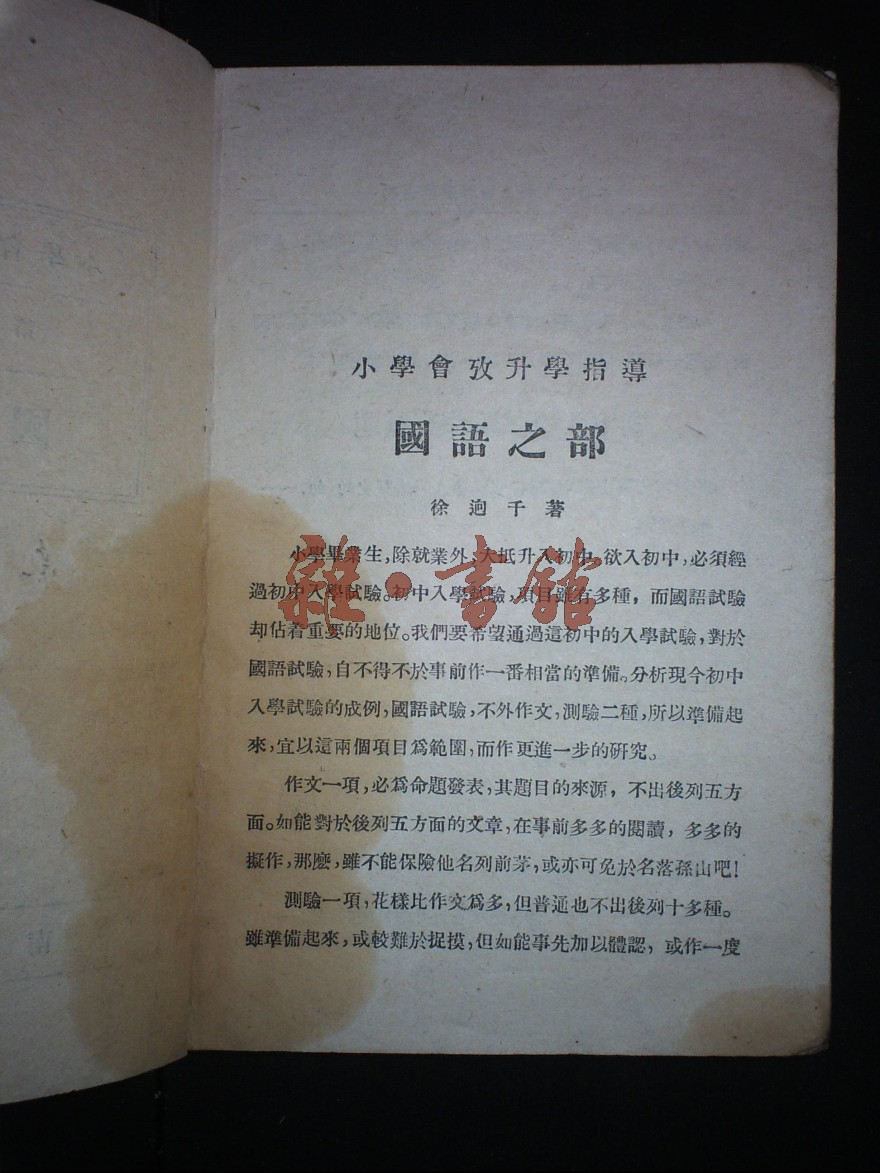 小學會攷升學指導
國語之部
徐迥千著
小學畢業生,除就業外,大抵升入初中,欲入初中,必須經
過初中入學試驗。初中入學試驗,項目雖有多種,而國語試驗
却佔着重要的地位。我們要希望通過這初中的入學試驗,對於
國語試驗,自不得不於事前作一番相當的準備。分析現今初中
入學試驗的成例,國語試驗,不外作文,測驗二種,所以準備起
來,宜以這兩個項目爲範圍,而作更進一步的研究。
作文一項,必爲命題發表,其題目的來源,不出後列五方
面。如能對於後列五方面的文章,在事前多多的閱讀,多多的
擬作,那麼,雖不能保險他名列前茅,或亦可免於名落孫山吧!
測驗一項,花樣比作文爲多,但普通也不出後列十多種。
雖準備起來,或較難於捉摸,但如能事先加以體認,或作一度
雜·書館